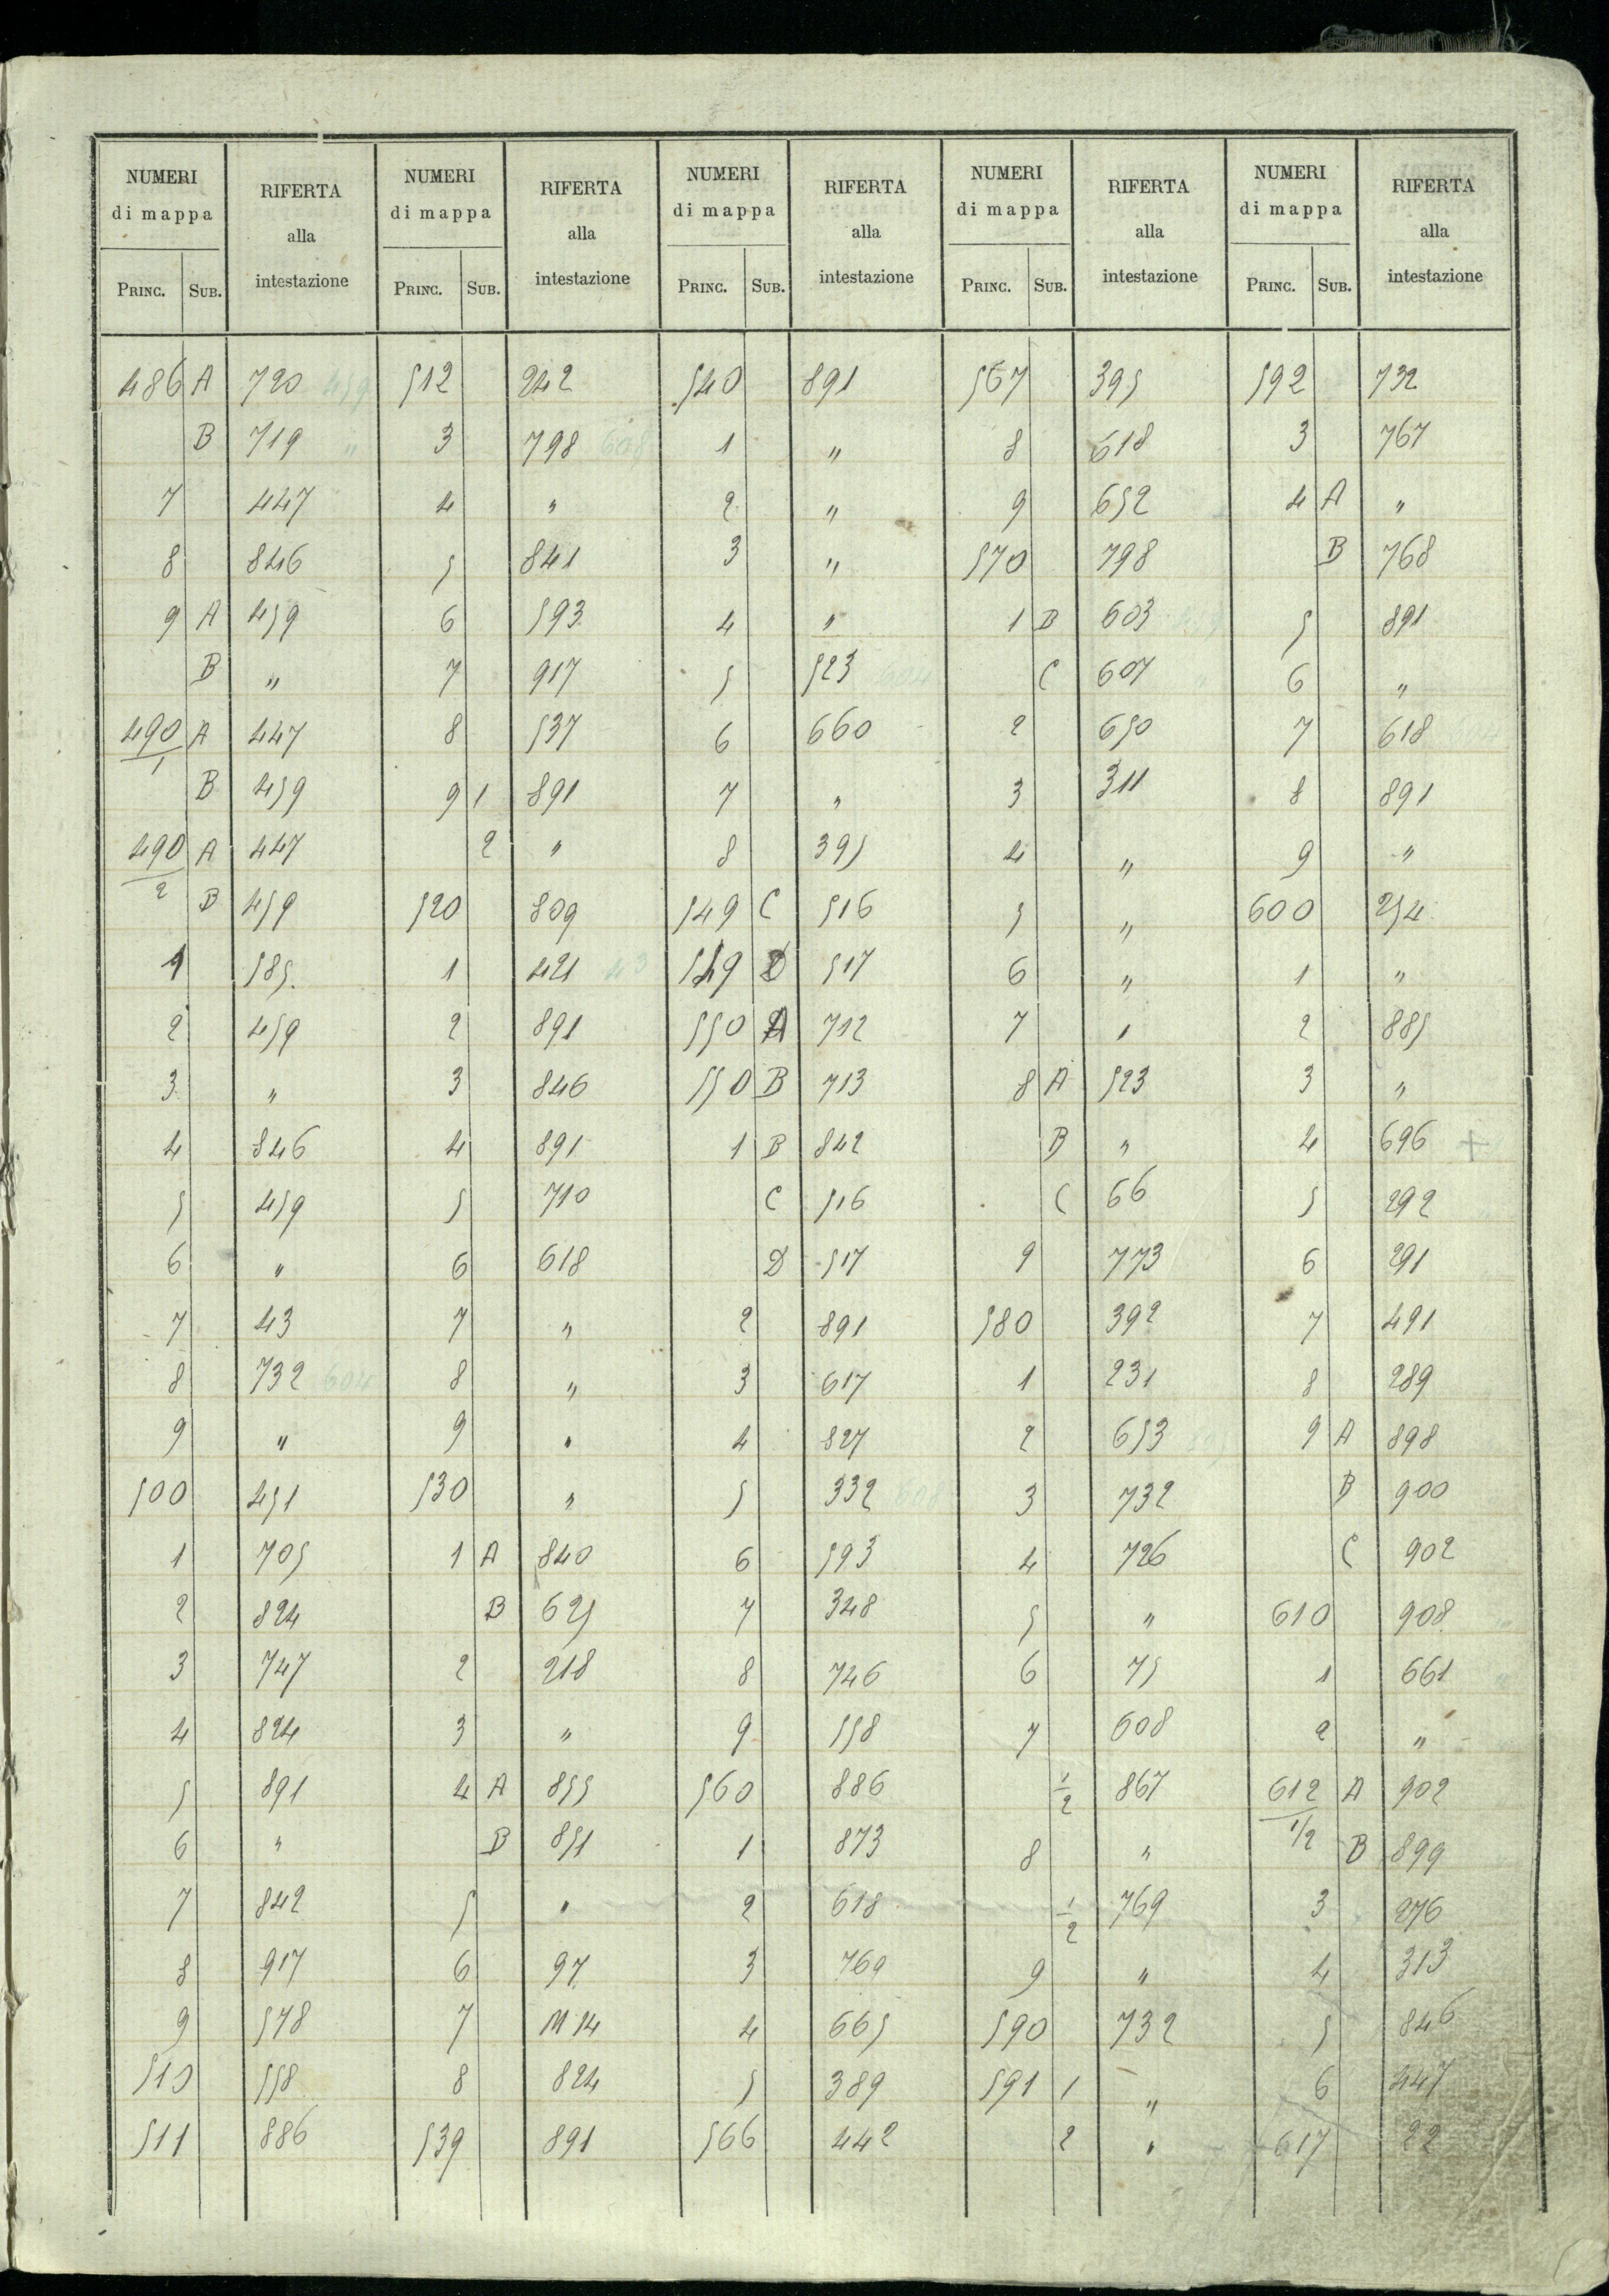 NUMERI di mappa RIFERTA alla intestazione NUMERI di mappa RIFERTA alla intestazione NUMERI di mappa RIFERTA alla intestazione NUMERI di mappa RIFERTA alla intestazione NUMERI di mappa RIFERTA alla intestazione
PRINC. SUB. PRINC. SUB. PRINC. SUB. PRINC. SUB. PRINC. SUB.
486 A 720 459 512 242 540 891 567 395 592 732
B 719 " 3 798 608 1 " 8 618 3 767
7 447 4 " 2 " 9 652 4 A "
8 846 5 841 3 " 570 798 B 768
9 A 459 6 593 4 " 1 B 603 5 891
B " 7 917 5 523 C 607 6 "
490/1 A 447 8 537 6 660 2 650 7 618
B 459 9 1 891 7 " 3 311 8 891
490/2 A 447 2 " 8 395 4 " 9 "
B 459 520 809 549 C 516 5 " 600 254
1 585 1 421 43 549 D 517 6 " 1 "
2 459 2 891 550 A 712 7 " 2 885
3 " 3 846 550 B 713 8 A 523 3 "
4 846 4 891 1 B 842 B " 4 696 +
5 459 5 710 C 516 C 66 5 292
6 " 6 618 D 517 9 773 6 291
7 43 7 " 2 891 580 392 7 491
8 732 604 8 " 3 617 1 231 8 289
9 " 9 " 4 827 2 653 9 A 898
500 451 530 " 5 332 608 3 732 B 900
1 705 1 A 840 6 593 4 726 C 902
2 824 B 625 7 348 5 " 610 908
3 747 2 218 8 746 6 75 1 661
4 824 3 " 9 558 7 608 2 "
5 891 4 A 855 560 886 1/2 867 612 1/2 A 902
6 " B 851 1 873 8 " B 899
7 842 5 " 2 618 1/2 769 3 276
8 917 6 97 3 769 9 " 4 313
9 578 7 M14 4 665 590 732 5 846
510 558 8 824 5 389 591 1 " 6 447
511 886 539 891 566 442 2 " 617 22